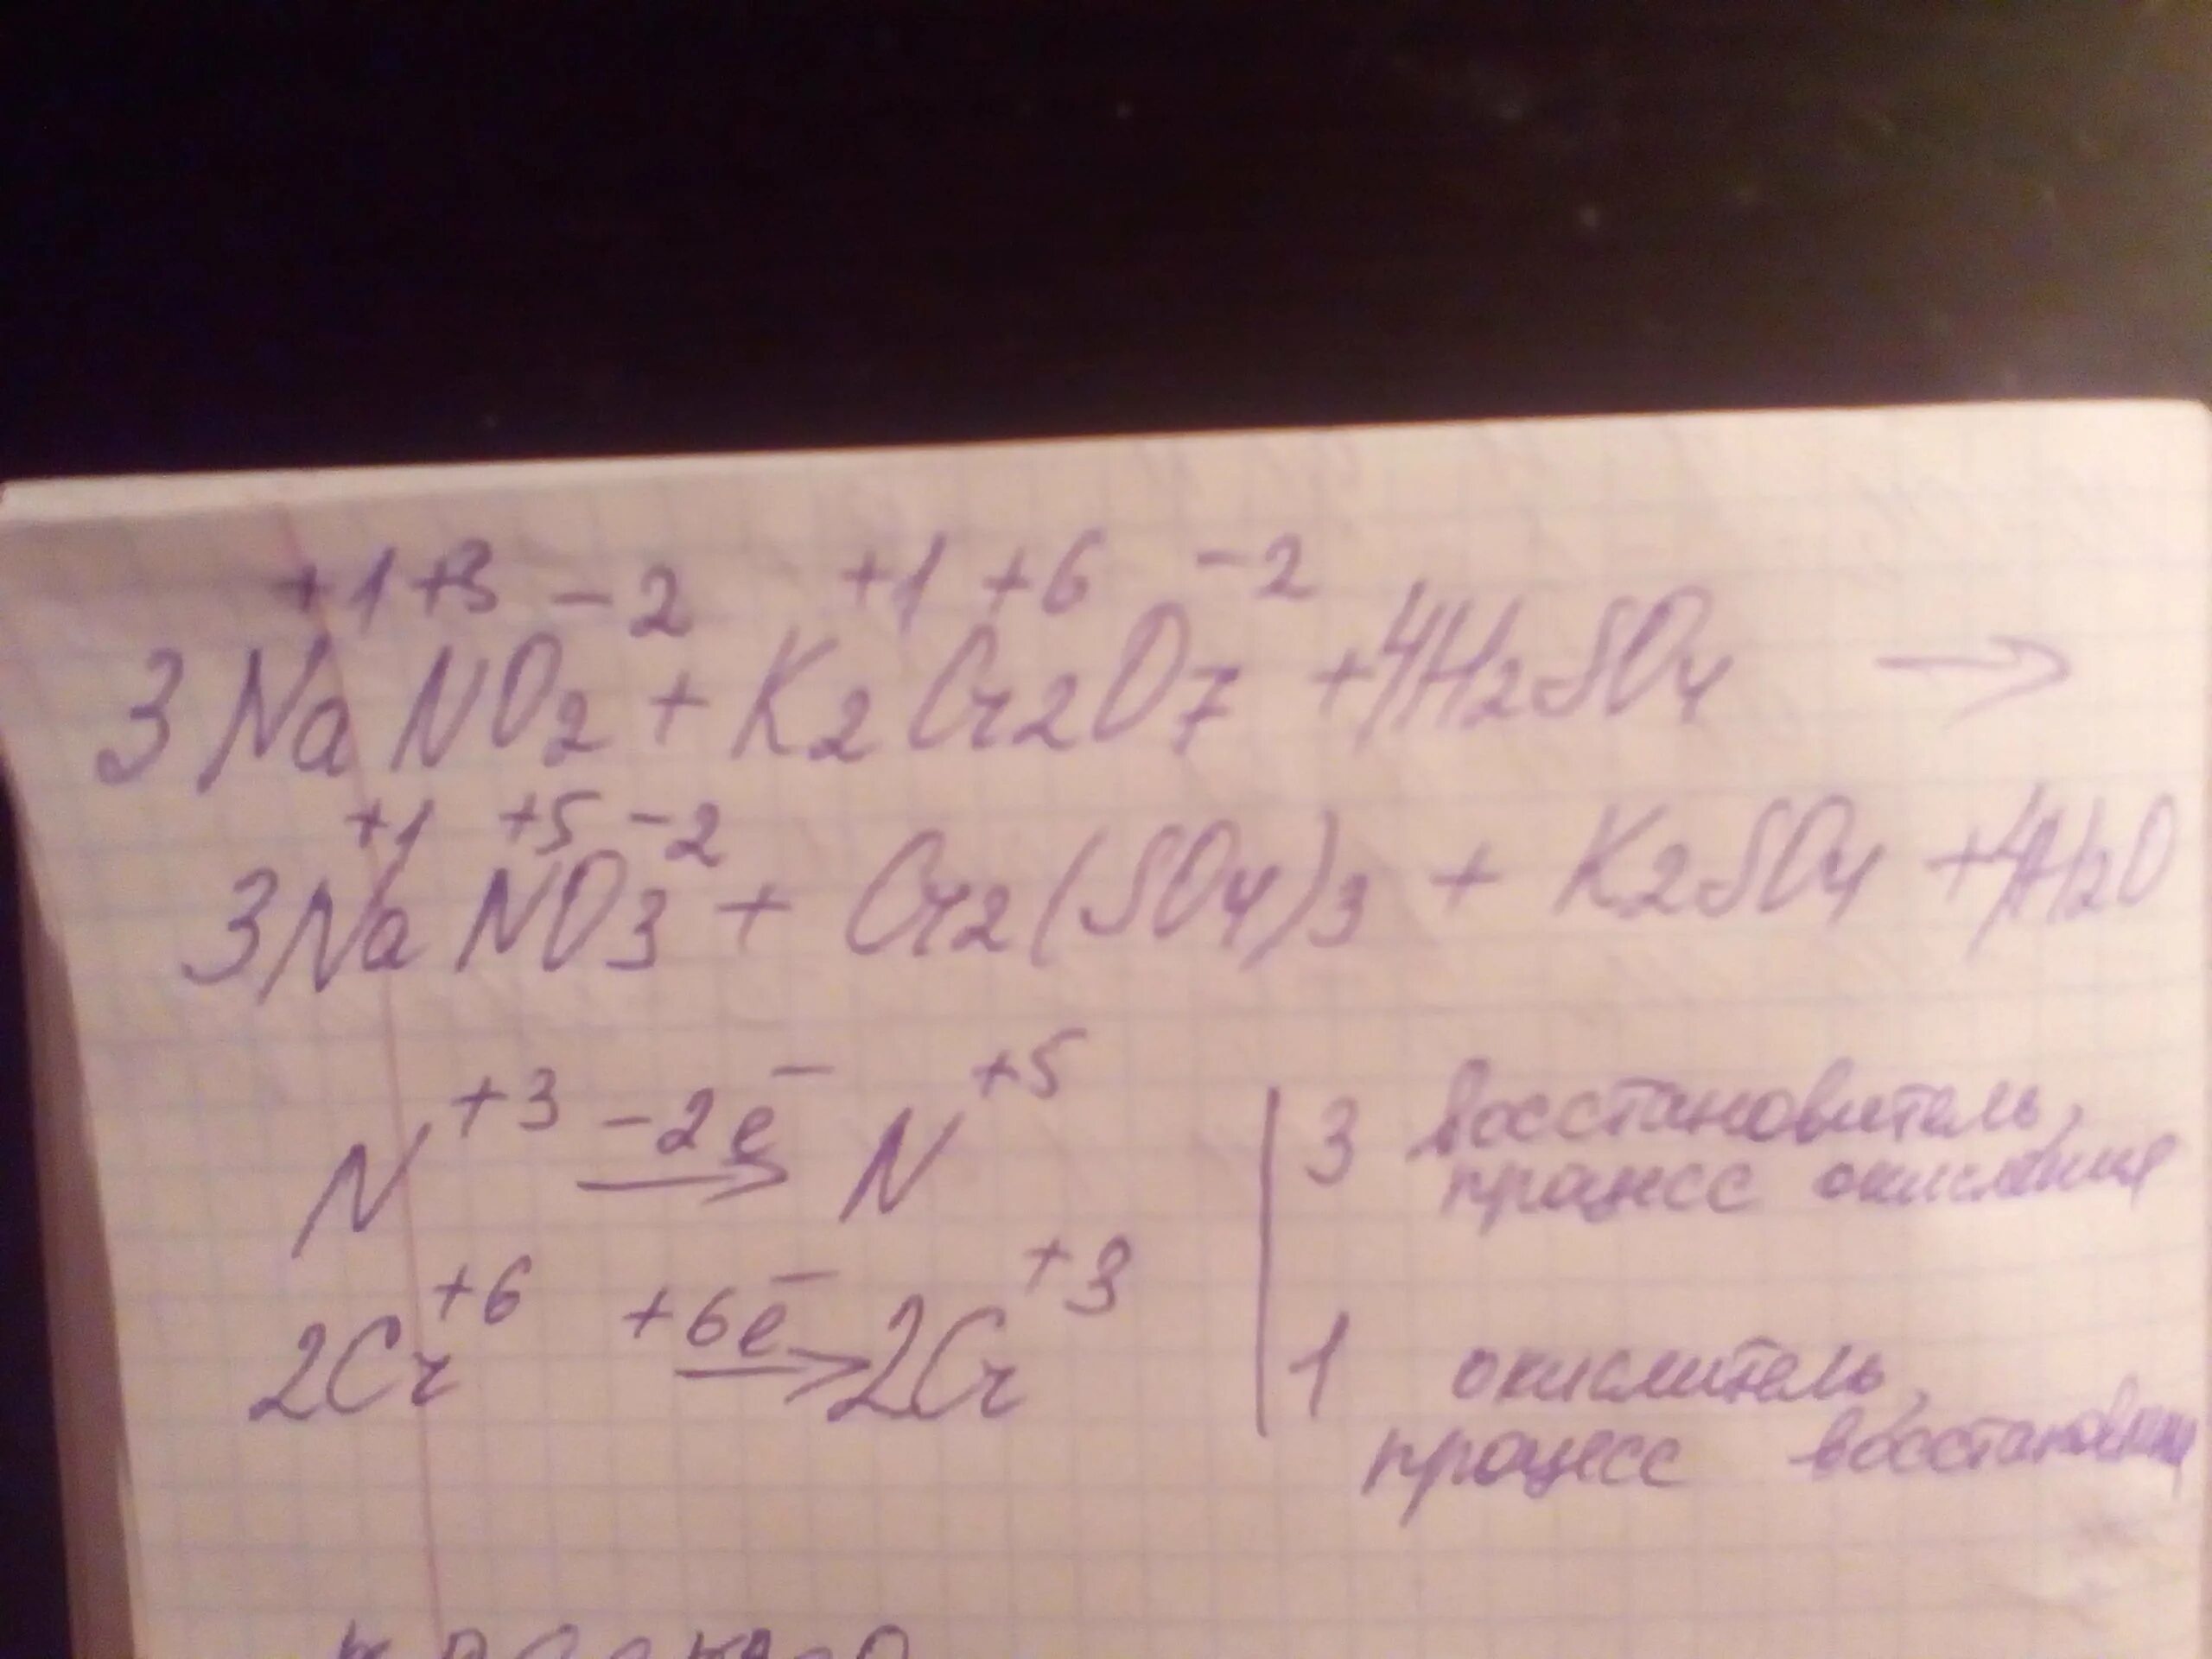 +1 +3 -2 +1 +6 -2
3NaNO2 + K2Cr2O7 + 4H2SO4 →
+1 +5 -2
3NaNO3 + Cr2(SO4)3 + K2SO4 + 4H2O
N+3 -2e- → N+5 | 3 восстановитель,
процесс окисления
2Cr+6 +6e- → 2Cr+3 | 1 окислитель,
процесс восстановления